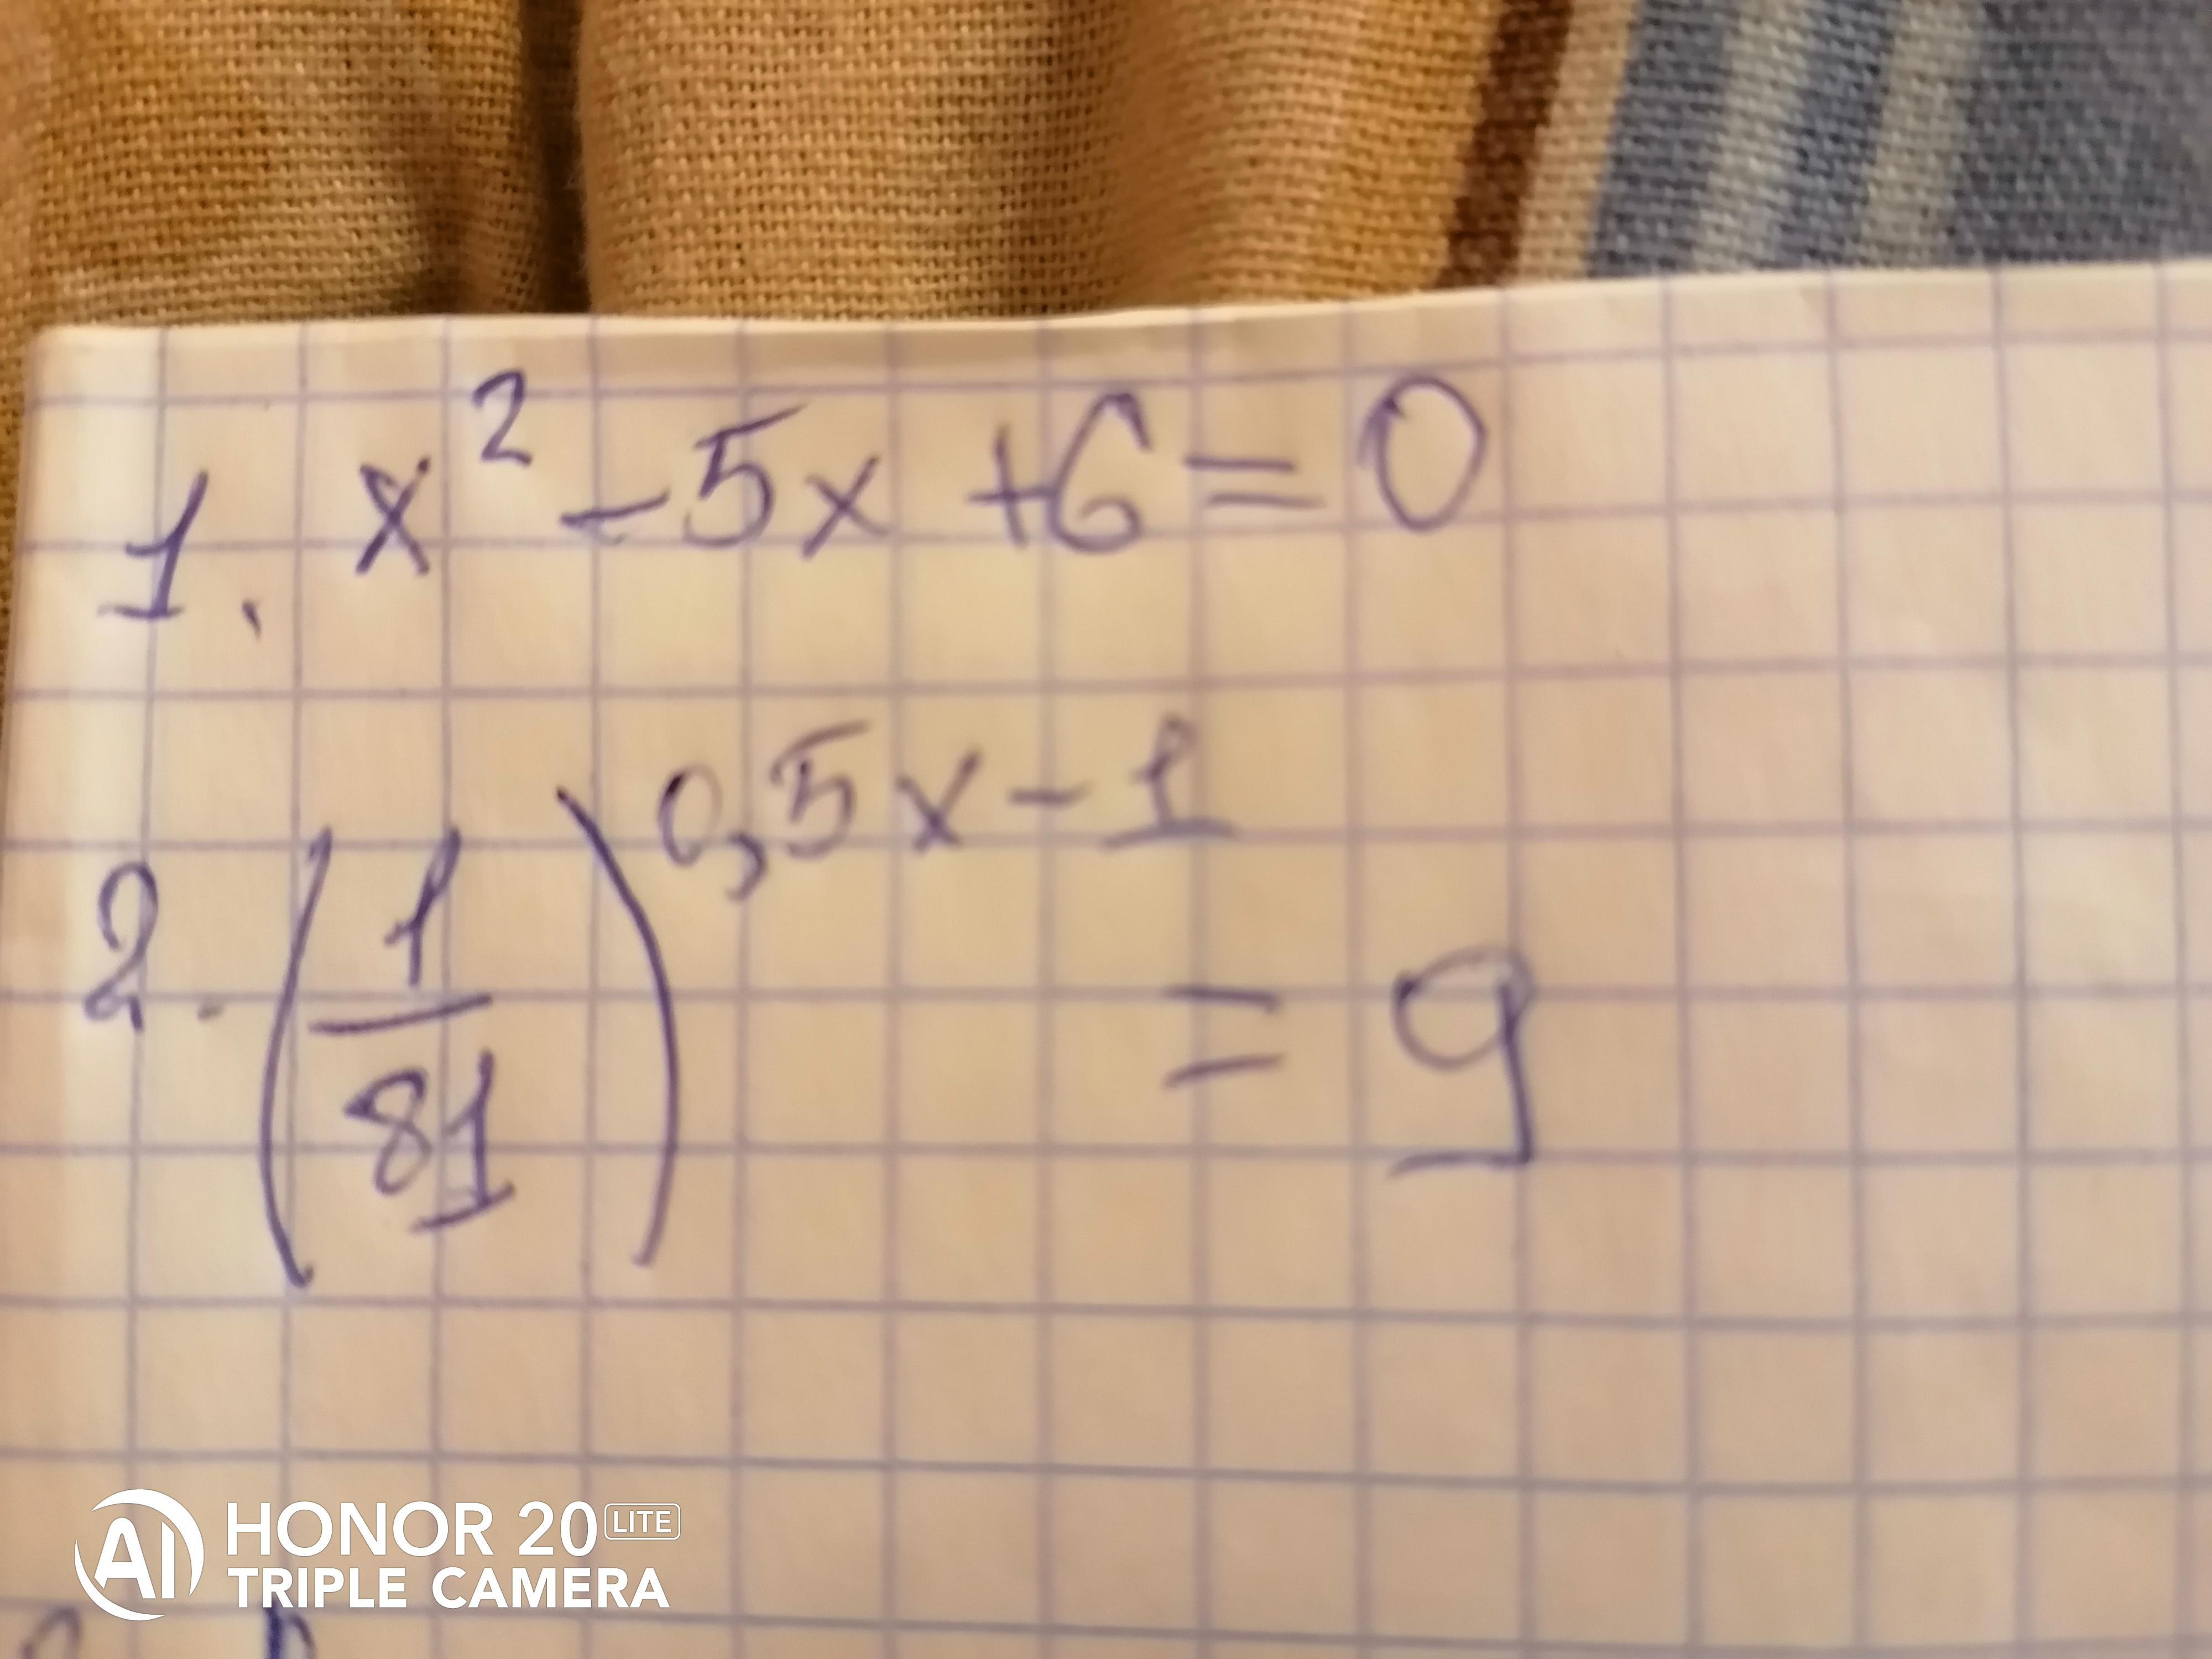 1. x² - 5x + 6 = 0
2. (1/81)^0,5x - 1 = 9
AI HONOR 20 LITE
TRIPLE CAMERA